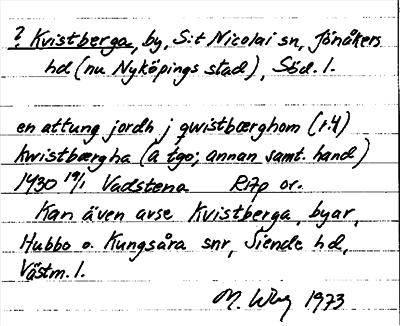 ? Kvistberga, by, S:t Nicolai sn, Jönåkers
hd (nu Nyköpings stad), Söd. l.
en attung jordh j qwistbærghom (r. 4)
kwistbærgha (å tgo; annan samt. hand)
1430 19/1 Vadstena Rap or.
Kan även avse Kvistberga, byar,
Hubbo o. Kungsåra snr, Siende hd,
Västm. l.
M. 1973